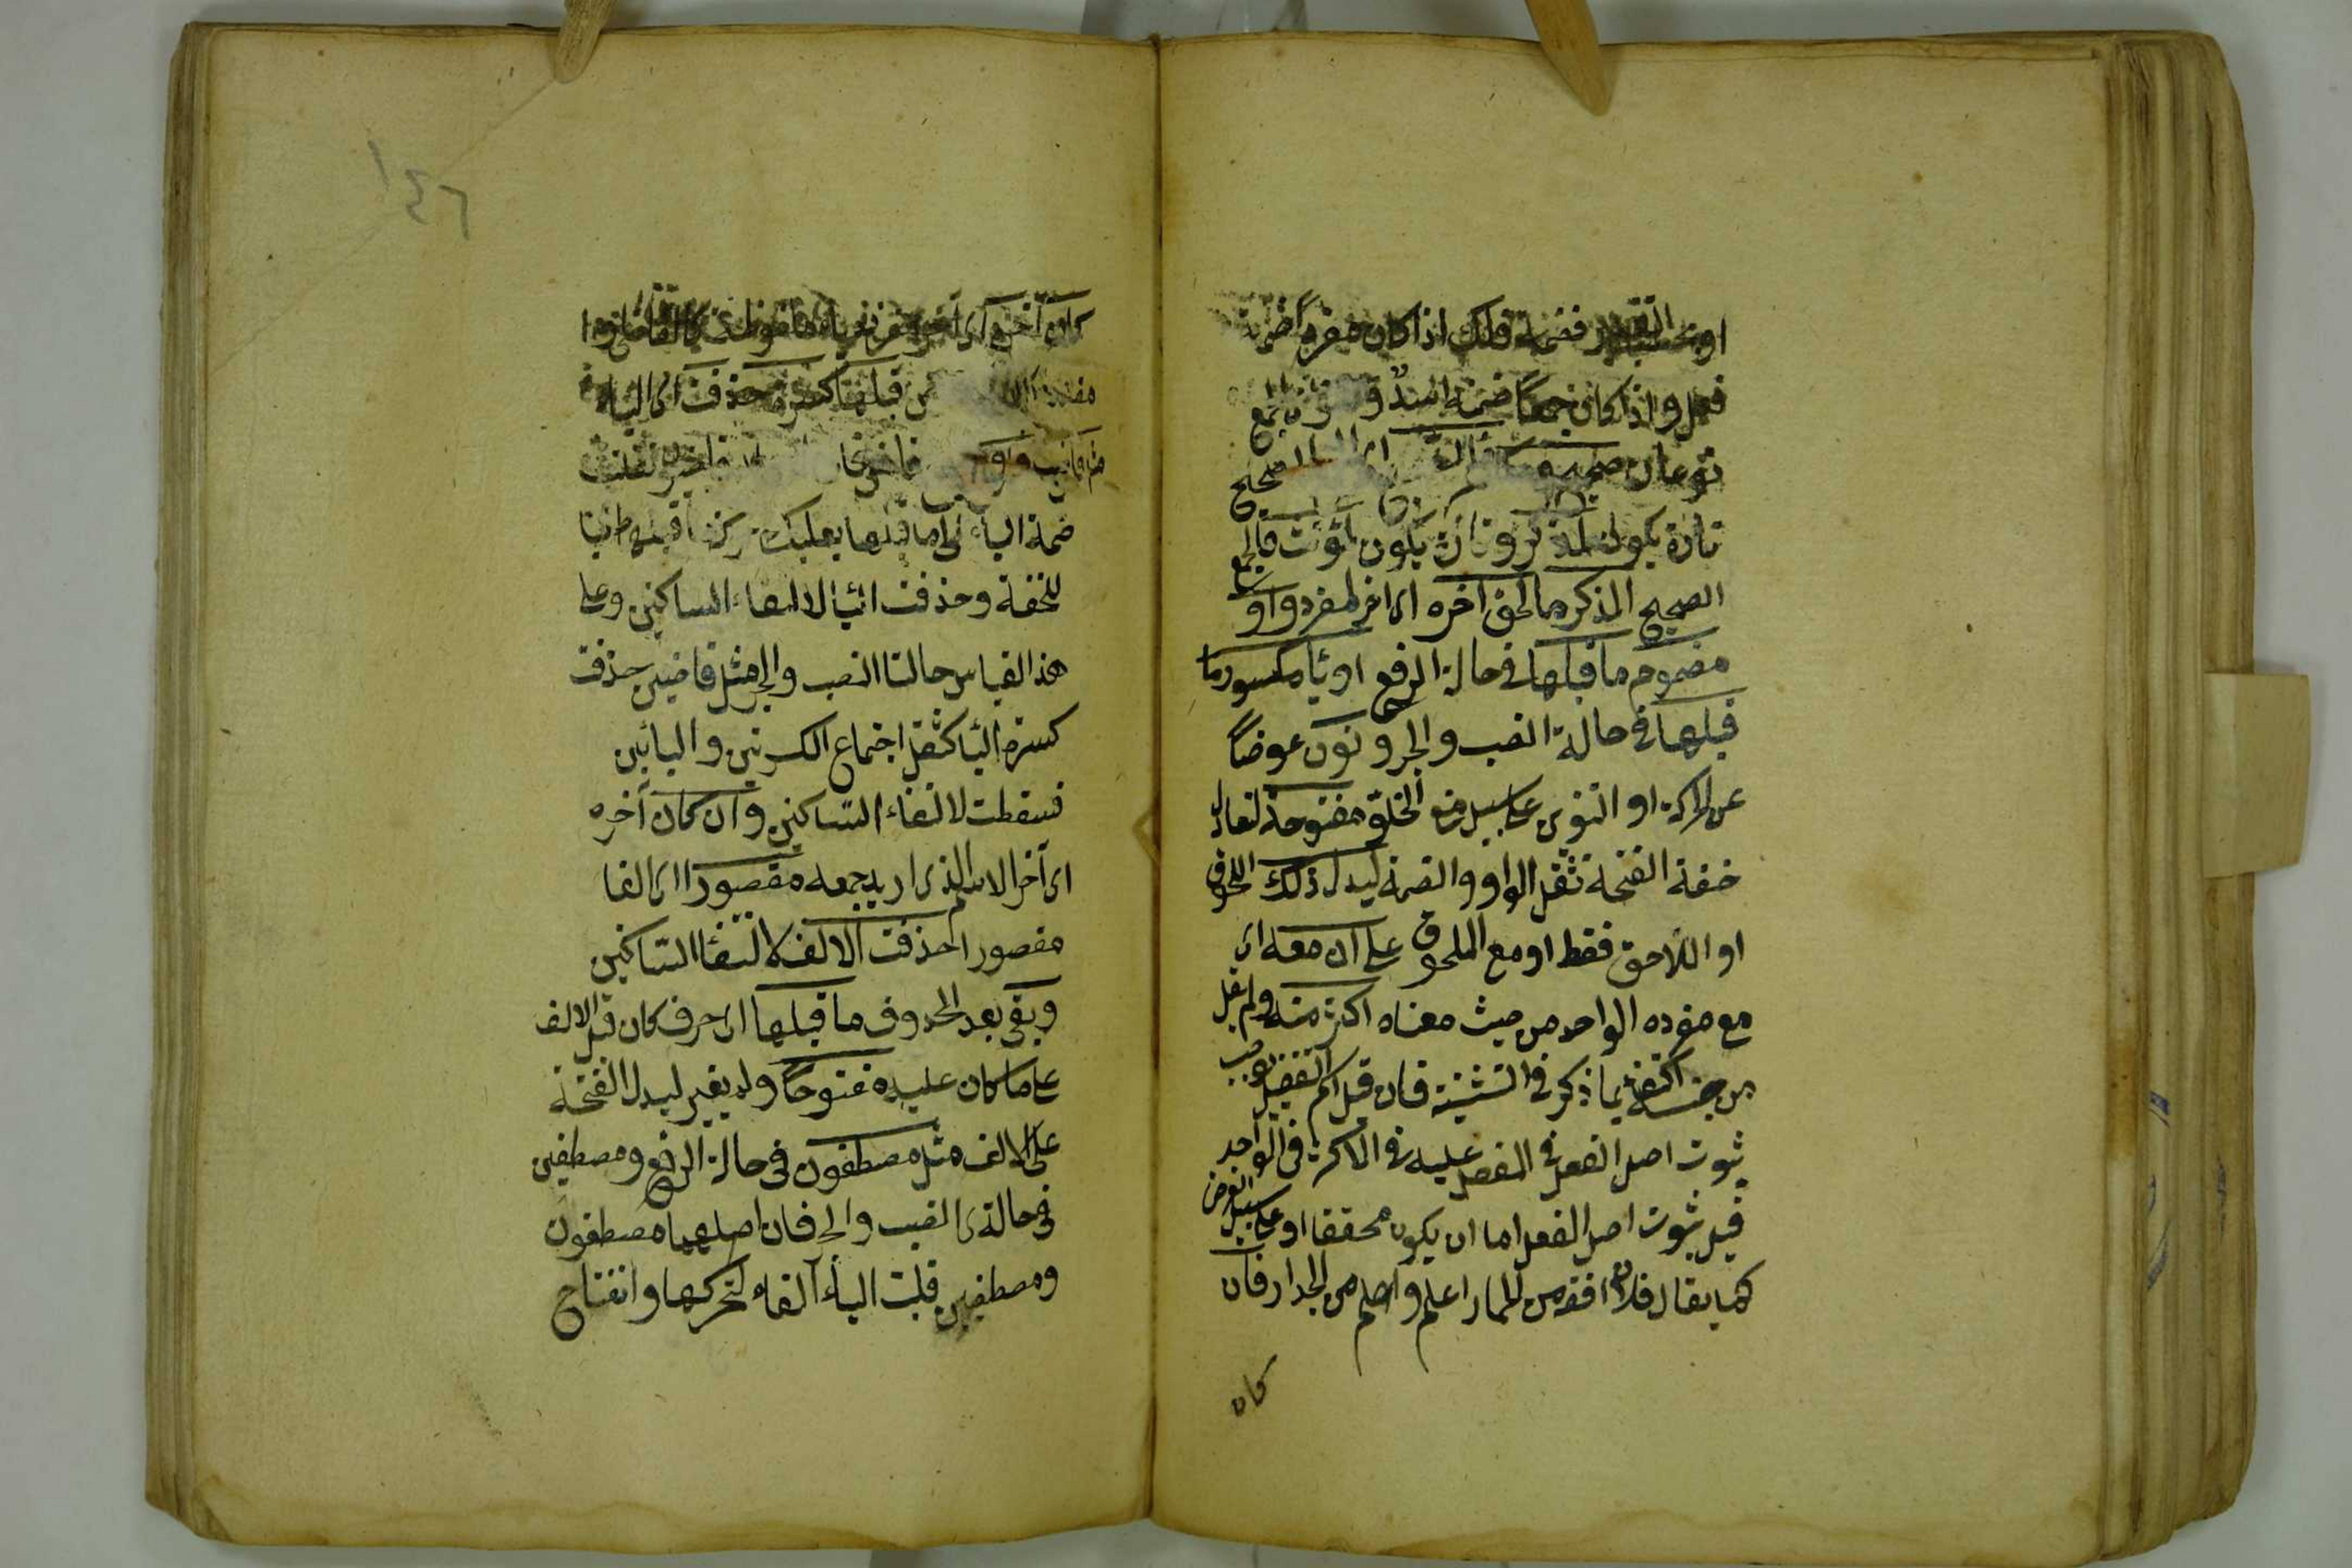 او بحسب التقدير فضمة فلك اذا كان مفردا ضمة
فعل واذا كان جمعا ضمة اسد و جمع
نوعان صحيح الصحيح
تارة يكون لمذكر وتارة يكون لمؤنث فالجمع
الصحيح المذكر ما لحق آخره اى اخر المفرد واو
مضموم ما قبلها فى حالة الرفع او ياء مكسور ما
قبلها فى حالة النصب والجر ونون عوضاً
عن الحركة او التنوين على سبيل منع الخلو مفتوحة لتعادل
خفة الفتحة ثقل الواو والضمة ليدل ذلك اللحوق
او اللاحق فقط او مع الملحوق على ان معه اى
مع مفرده الواحد من حيث معناه اكثر منه ولم يقل
من جنسه اكتفاء بما ذكر فى التثنية فان قيل اسم التفضيل يوجب
ثبوت اصل الفعل فى المفضل عليه ولا كثرة فى الواحد
قيل ثبوت اصل الفعل اما ان يكون محققا او على سبيل الفرض
كما يقال فلان افقه من الحمار اعلم واحلم من الجدار فان
كان
١٤٦
كان آخره اى آخر المفرد ياء ملفوظة كالقاضى او
مقدرة قبلها كسرة حذفت اى الياء
مثل قاضون فنقلت
ضمة الياء الى ما قبلها بعد سلب حركة ما قبلها طلبا
للخفة وحذفت الياء لالتقاء الساكنين وعلى
هذا القياس حالتا النصب والجر مثل قاضين حذفت
كسرة الياء لثقل اجتماع الكسرتين واليائين
فسقطت لالتقاء الساكنين وان كان آخره
اى آخر الاسم الذى اريد جمعه مقصورا اى الفا
مقصورا حذفت الالف لالتقاء الساكنين
وبقى بعد الحذف ما قبلها اى حرف كان قبل الالف
على ما كان عليه مفتوحاً ولم يغير ليدل الفتحة
على الالف مثل مصطفون فى حالة الرفع ومصطفين
فى حالتى النصب والجر فان اصلهما مصطفون
ومصطفيين قلبت الياء الفا لتحركها وانفتاح